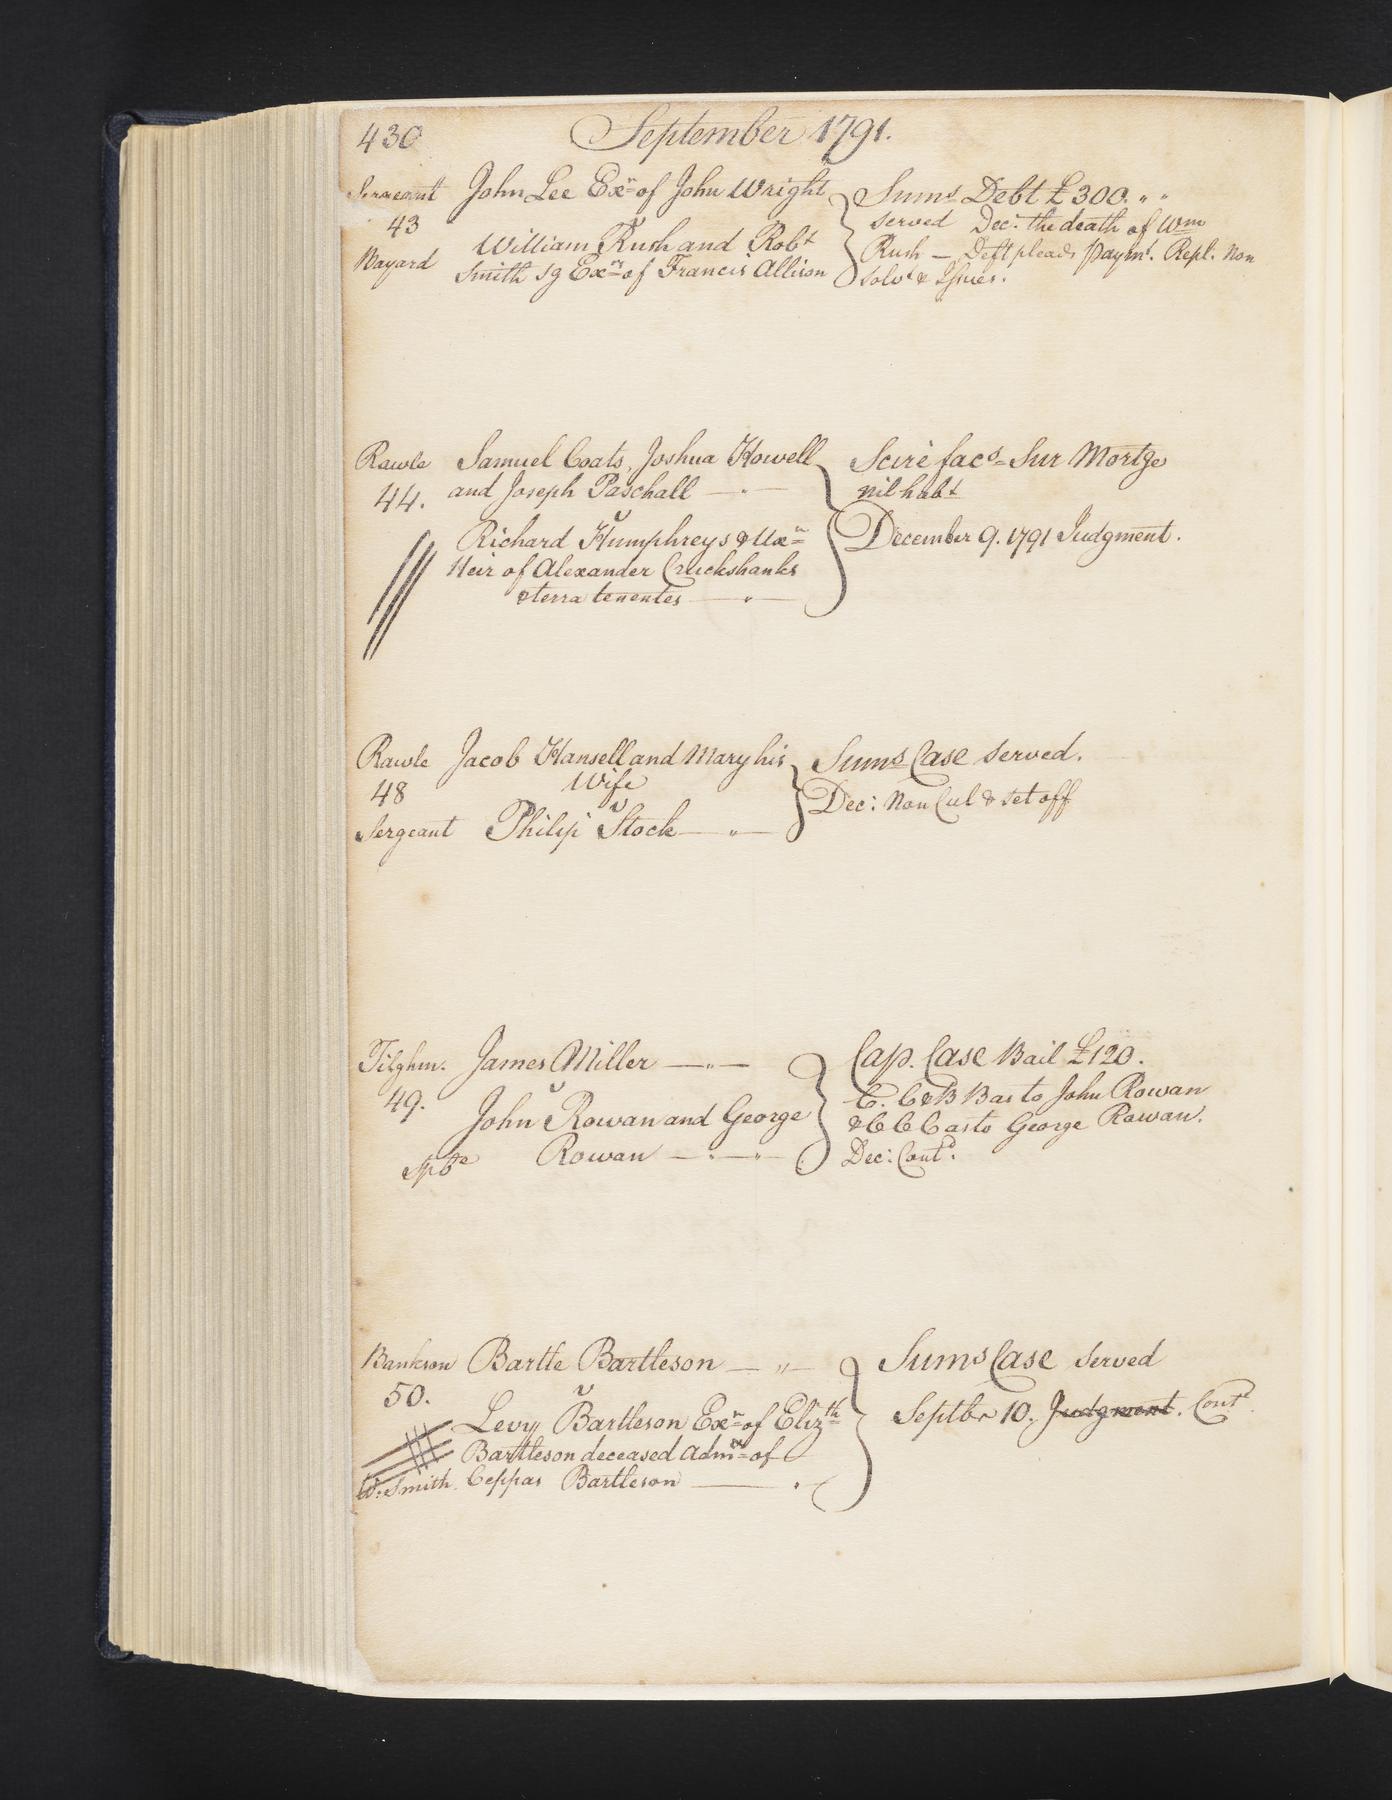 430 September 1791.
Sergeant John Lee Exr of John Wright Sums Debt £300 " "
43 v served Dec: the death of Wm
William Rush and Robt Rush — Deft pleads Paymt. Repl: Non
Bayard Smith Exrs of Francis Allison Solvt & Issues.
Rawle Samuel Coats, Joshua Howell Scire facs Sur Mortge
44. and Joseph Paschall — " — nil habt
v
Richard Humphreys & Uxr December 9. 1791 Judgment.
Heir of Alexander Cruckshanks
& terra tenentes — " —
Rawle Jacob Hansell and Mary his Sums Case served.
48 Wife Dec: Non Cul & set off
v
Sergeant Philip Stock — " —
Tilghm. James Miller — " — Cap. Case Bail £120.
49. v C. C & B B as to John Rowan
John Rowan and George & C C C as to George Rowan.
Spa Rowan — " — " Dec: Contd.
Bankson Bartle Bartleson — " — Sums Case served
50. v
Levy Bartleson Exr of Elizth Septbr 10. Judgment. Contd
Bartleson deceased Admrx of
W. Smith. Ceppas Bartleson — "